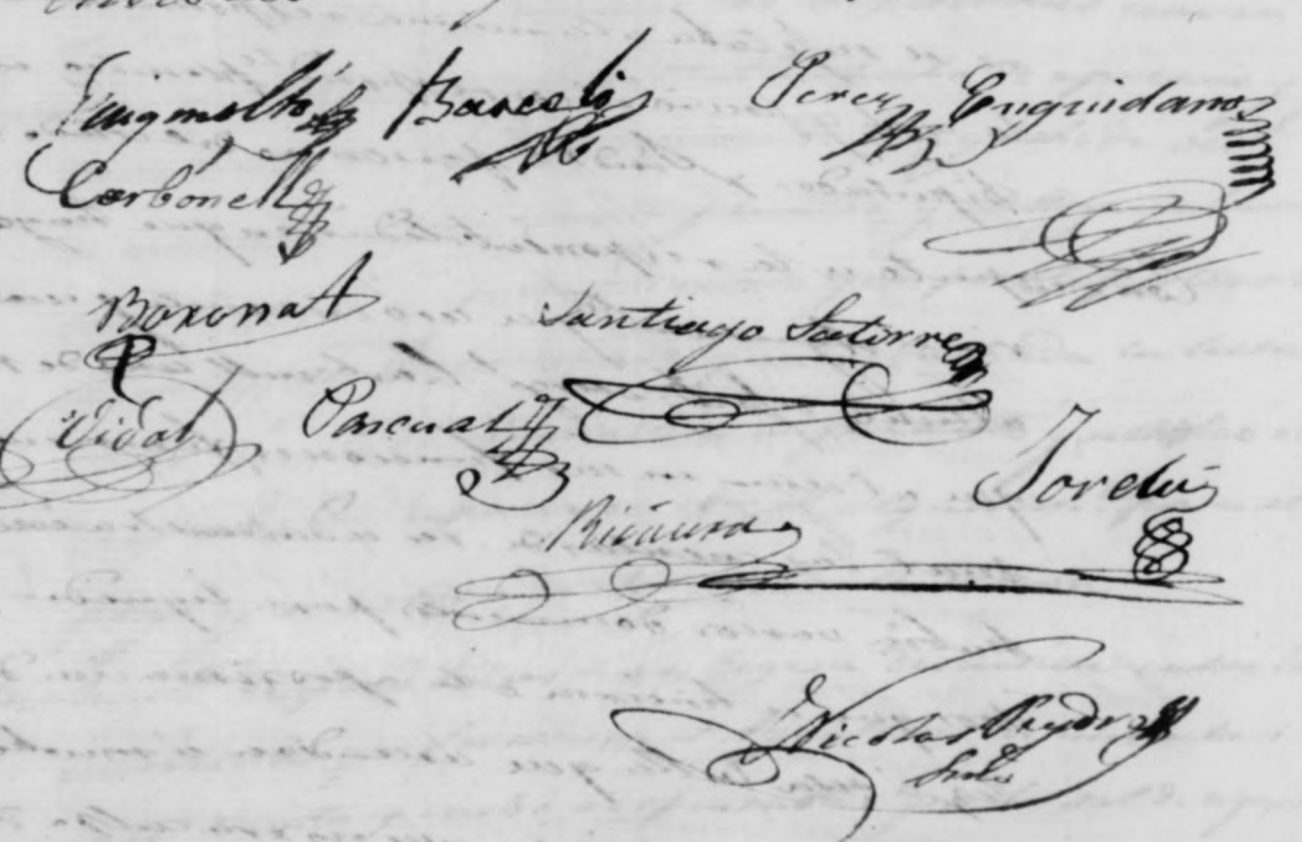 Puigmoltó Barceló Perez Enguidanos
Carbonell
Boronat Santiago Satorre
Vidal Pascual
Jordá
Nicolas Peydro
Srio